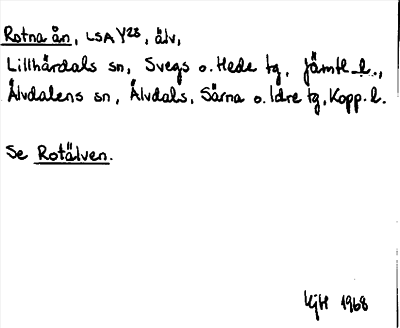 Rotna ån, LSA Y28, älv,
Lillhärdals sn, Svegs o. Hede tg, Jämtl. l.,
Älvdalens sn, Älvdals, Särna o. Idre tg, Kopp. l.
Se Rotälven.
KjH 1968